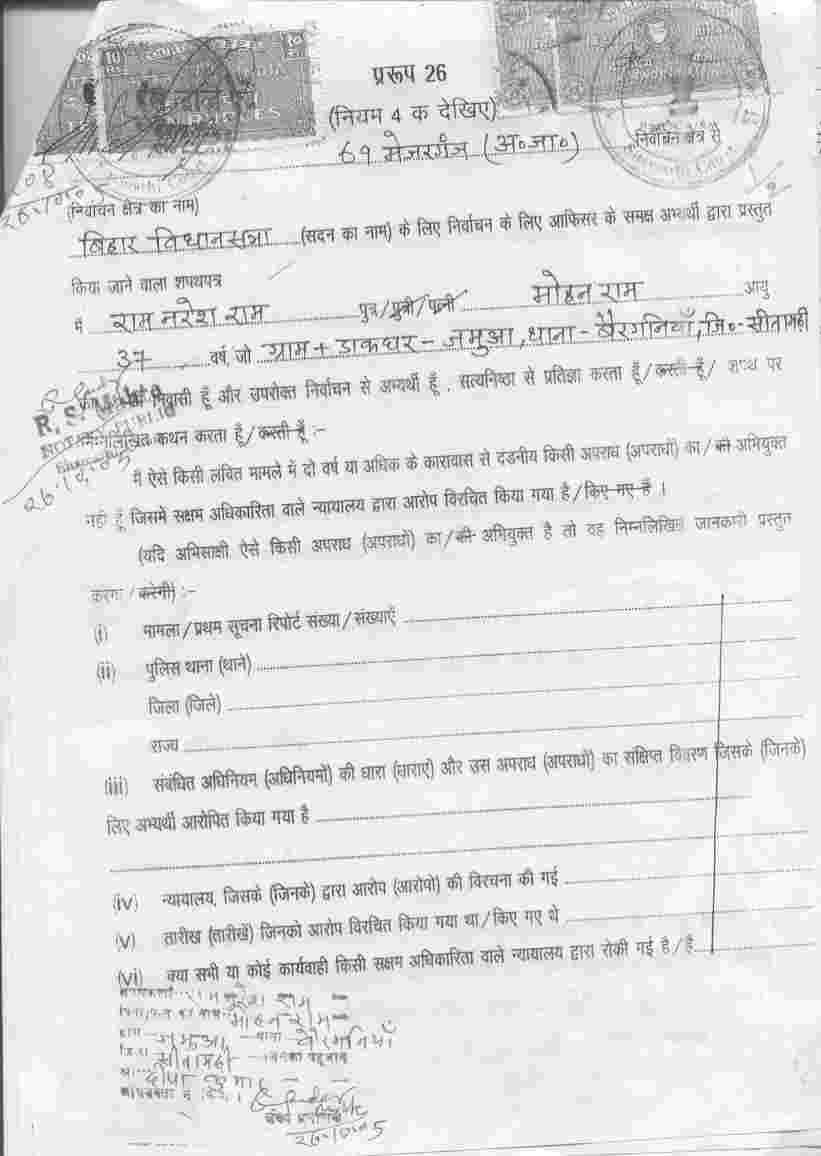 प्ररूप 26
(नियम 4 क देखिए)
69 मेजरगंज (अ०जा०) निर्वाचन क्षेत्र से
(निर्वाचन क्षेत्र का नाम)
बिहार विधानसभा (सदन का नाम) के लिए निर्वाचन के लिए आफिसर के समक्ष अभ्यर्थी द्वारा प्रस्तुत
किया जाने वाला शपथपत्र
मैं राम नरेश राम पुत्र/पुत्री/पत्नी मोहन राम आयु
37 वर्ष, जो ग्राम + डाकघर - जमुआ, थाना - बैरगनियाँ, जि०-सीतामढ़ी
निवासी हूँ और उपरोक्त निर्वाचन से अभ्यर्थी हूँ, सत्यनिष्ठा से प्रतिज्ञा करता हूँ/करती हूँ/ शपथ पर
निम्नलिखित कथन करता हूँ/करती हूँ :-
मैं ऐसे किसी लंबित मामले में दो वर्ष या अधिक के कारावास से दंडनीय किसी अपराध (अपराधों) का/की अभियुक्त
नहीं हूँ जिसमें सक्षम अधिकारिता वाले न्यायालय द्वारा आरोप विरचित किया गया है/किए गए है ।
(यदि अभिसाक्षी ऐसे किसी अपराध (अपराधों) का/की अभियुक्त है तो वह निम्नलिखित जानकारी प्रस्तुत
करेगा/करेगी) :-
(i) मामला/प्रथम सूचना रिपोर्ट संख्या/संख्याएँ
(ii) पुलिस थाना (थाने)
जिला (जिले)
राज्य
(iii) संबंधित अधिनियम (अधिनियमों) की धारा (धाराएं) और उस अपराध (अपराधों) का संक्षिप्त विवरण जिसके (जिनके)
लिए अभ्यर्थी आरोपित किया गया है
(iv) न्यायालय, जिसके (जिनके) द्वारा आरोप (आरोपो) की विरचना की गई
(v) तारीख (तारीखें) जिनको आरोप विरचित किया गया था/किए गए थे
(vi) क्या सभी या कोई कार्यवाही किसी सक्षम अधिकारिता वाले न्यायालय द्वारा रोकी गई है/हैं
राम नरेश राम
मोहन राम
जमुआ थाना बैरगनियाँ
सीतामढ़ी जिनका पहचान